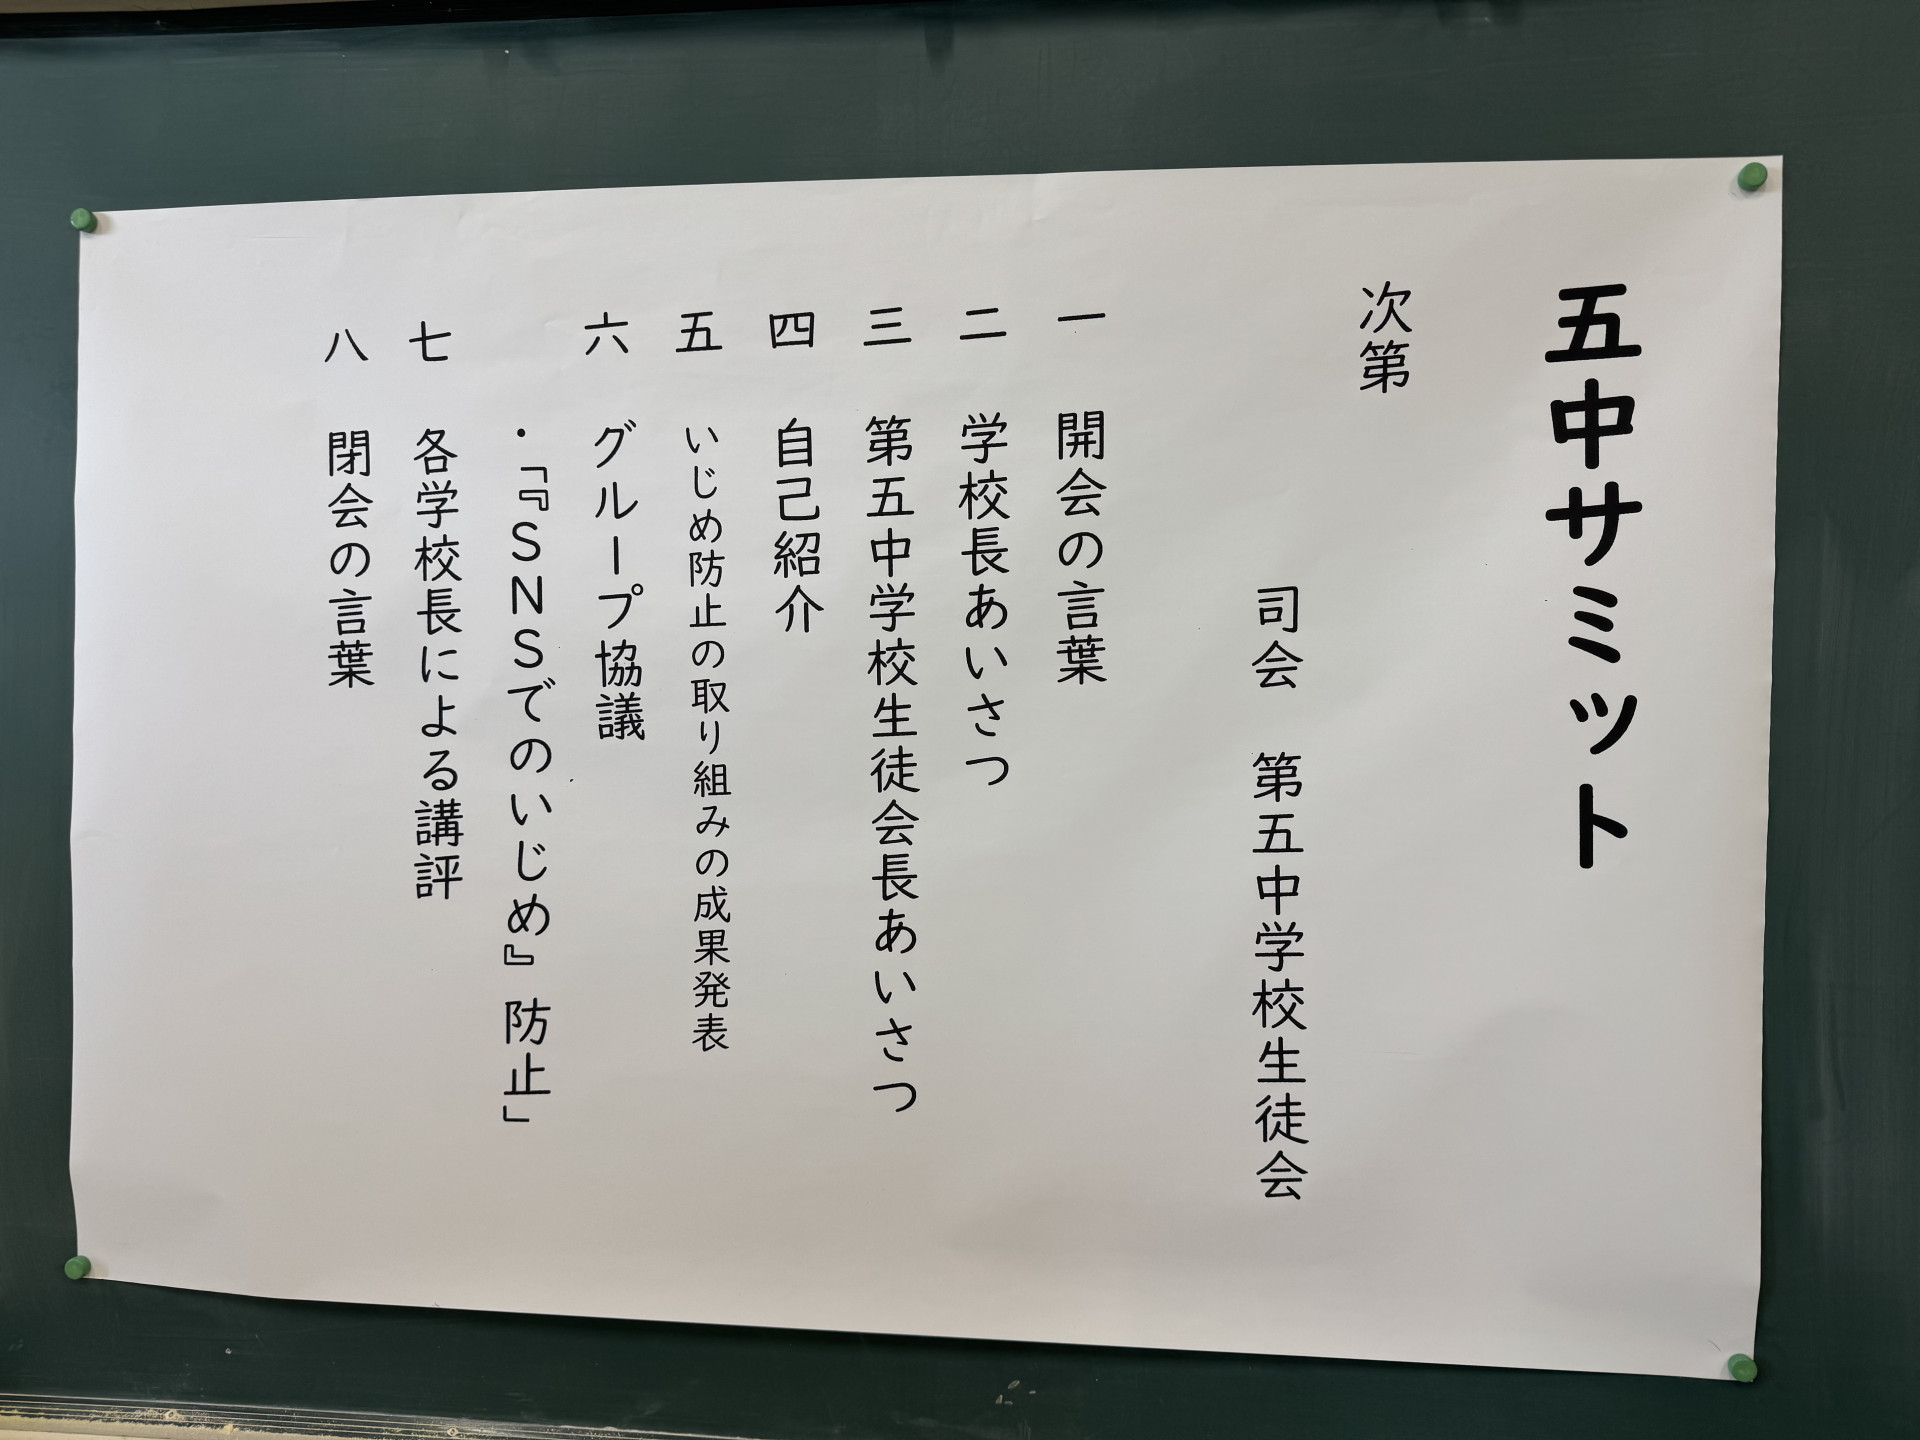 五中サミット
次第
司会　第五中学校生徒会
一　開会の言葉
二　学校長あいさつ
三　第五中学校生徒会長あいさつ
四　自己紹介
五　いじめ防止の取り組みの成果発表
六　グループ協議
・「『SNSでのいじめ』防止」
七　各学校長による講評
八　閉会の言葉